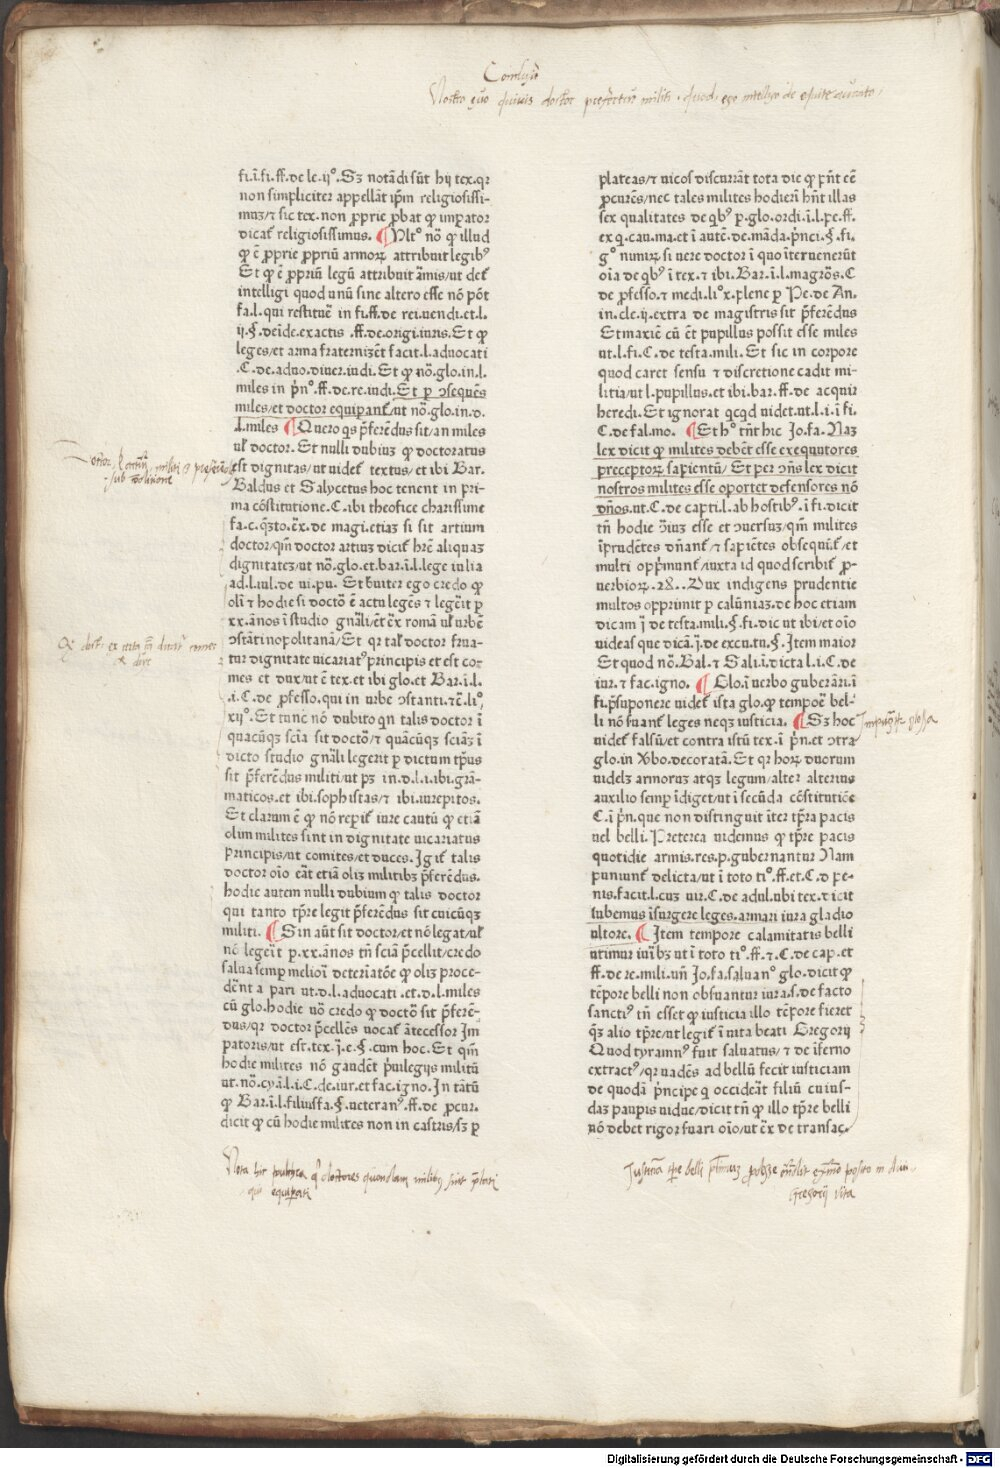 Nostro quo quivis doctor prefertur militi. quod ego intelligo de
fi.ī.fi.ff.de le.ijº.Sʒ notādi sūt hij tex.qꝛ
non simpliciter appellāt ip̄m religiosissi-
muʒ/⁊ sic tex.non ꝓprie ꝓbat ꝙ imꝑator
dicat᷑ religiosissimus. ¶Vltº nō ꝙ illud
ꝙ ē ꝓprie ꝓpriū armoꝝ attribuit legibꝰ
Et ꝙ ē ꝓpriū legū attribuit āmis/ut det᷑
intelligi quod unū sine altero esse nō pōt
fa.l.qui restituē in fi.ff.de rei.uendi.et.l.
ij.§.deīde.exactis .ff.de.origi.iuris.Et ꝙ
leges/et arma fraternizēt facit.l.aduocati
.C.de.aduo.diuer.iudi.Et ꝙ nō.glo.in.l.
miles in p̄nº.ff.de.re.iudi.Et ꝑ ↄsequēs
miles/et doctor equiparant᷑/ut nō.glo.in.d.
.l.miles ¶Quero qs p̄ferēdus sit/an miles
ul̓ doctor. Et nulli dubiuʒ ꝙ doctoratus
est dignitas/ut uidet᷑ textus/et ibi Bar.
Baldus et Salycetus hoc tenent in pri-
ma cōstitutione.C.ibi theofice charissime
fa.c.qʒto.ēx.de magi.etiaʒ si sit artium
doctor/qm̄ doctor artiuʒ dicit᷑ hrē aliquaʒ
dignitateʒ/ut nō.glo.et.bar.ī.l.lege iulia
ad.l.iul.de ui.pu. Et breuiter ego credo ꝙ
oli᷑ ⁊ hodie si doctō ē actu legēs ⁊ legēit ꝑ
xx.ānos ī studio gn̄ali/et ēx romā ul̓ urbē
ↄstātinopolitanā/Et qꝛ tal̓ doctor frua-
tur dignitate uicariatꝰ principis et est co-
mes et dux/ut ē tex.et ibi glo.et Bar.ī.l.
.i.C.de ꝓfesso.qui in urbe ↄstanti.⁊c̄.liº.
xijº.Et tunc nō dubito qn̄ talis doctor ī
quacūqʒ scīa sit doctō/⁊ quācūqʒ sciāʒ ī
dicto studio gn̄ali legerit ꝑ dictum tp̄us
sit p̄ferēdus militi/ut pʒ in.d.l.i.ibi.grā-
maticos.et ibi.sophistas/⁊ ibi.iurepitos.
Et clarum ē ꝙ nō reꝑit᷑ iure cautū ꝙ etiā
olim milites sint in dignitate uicariatus
principis/ut comites/et duces.Jgit᷑ talis
doctor oīo eāt etiā olis militibꝫ p̄ferēdus.
hodie autem nulli dubium ꝙ talis doctor
qui tanto tp̄re legit p̄ferēdus sit cuicūqʒ
militi. ¶Sin aūt sit doctor/et nō legat/ul̓
nō legēit ꝑ.xx.ānos tn̄ sciā p̄cellit/credo
salua semꝑ melioī deterīatōe ꝙ olis proce-
dēnt a pari ut.d.l.aduocati .et.d.l.miles
cū glo.hodie uō credo ꝙ doctō sit p̄ferē-
dus/qꝛ doctor p̄cellēs uocat᷑ ātecessor Jm
patoris/ut est.tex.ī.e.§.cum hoc.Et qm̄
hodie milites nō gaudēt p̄uilegijs militū
ut.nō.cy.ī.l.i.C.de.iur.et fac.igno.In tātū
ꝙ Bar.ī.l.filiusfa.§.ueteranꝰ.ff.de ꝓcur.
dicit ꝙ cū hodie milites non in castris/sʒ ꝑ
plateas/⁊ uicos discurrāt tota die ꝙ p̄nt eē
ꝓcurēs/nec tales milites hodierī hn̄t illas
sex qualitates de qbꝰ ꝑ.glo.ordi.ī.l.pe.ff.
ex q.cau.ma.et ī autē.de.māda.pṅci.§.fi.
gº nimiꝝ si uere doctor ī quo īteruenerūt
oīa de qbꝰ ī tex.⁊ ibi.Bar.ī.l.magrōs.C
de ꝓfesso.⁊ medi.liºx.plene ꝑ Pe.de An.
in.cle.ij.extra de magistris sit p̄ferēdus
Et maxiē cū ēt pupillus possit esse miles
ut.l.fi.C.de testa.mili. Et sic in corpore
quod caret sensu ⁊ discretione cadit mi-
litia/ut l.pupillus.et ibi.bar.ff.de acquir
heredi.Et ignorat qcqd uidet.ut.l.i ī fi.
C.de fal.mo. ¶Et hº tn̄t hic Jo.fa.Naʒ
lex dicit ꝙ milites debēt esse exequutores
preceptoꝝ sapientū/ Et per ↄn̄s lex dicit
nostros milites esse oportet defensores nō
dn̄os.ut.C.de capti.l.ab hostibꝰ.ī fi.dicit
tn̄ hodie ↄ̄iuʒ esse et ↄuersuʒ/qm̄ milites
īprudētes dn̄ant᷑ ⁊ sapiētes obsequūt᷑/et
multi opp̄munt᷑/iuxta id quod scribit᷑ ꝓ-
uerbioꝝ.28..Dux indigens prudentie
multos opprimit ꝑ calūniaʒ.de hoc etiam
dicam ī de testa.mili.§.fi.dic ut ibi/et oīo
uideas que dicā.ī.de excu.tu.§.Jtem maior
Et quod nō.Bal.⁊ Sali.ī.dicta l.i.C.de
iur.⁊ fac.igno. ¶Glo.ī uerbo gubernāri.ī
fi.p̄suponere uidet᷑ ista glo.ꝙ tempoē bel-
li nō fuant᷑ leges neqʒ iusticia. ¶Sʒ hoc
uidet᷑ falsū/et contra istū tex.ī p̄n.et ↄtra
glo.in Ꝟbo.decoratā.Et qꝛ hoꝝ duorum
uidelʒ armoruʒ atqʒ legum/alter alterius
auxilio semꝑ īdiget/ut ī secūda cōstitutiōe
C.ī p̄n.que non distinguit īter tp̄ra pacis
uel belli.Preterea uidemus ꝙ tp̄re pacis
quotidie armis.res.p.gubernantur Nam
puniunt᷑ delicta/ut ī toto tiº.ff.et.C.d pe-
nis.facit.l.cuʒ uir.C.de adul.ubi tex.dicit
iubemus īsurgere leges.armari iura gladio
ultore. ¶Jtem tempore calamitatis belli
utimur iuribꝫ ut ī toto tiº.ff.⁊.C.de cap.et
ff.de re.mili.un̄ Jo.fa.saluanº glo.dicit ꝙ
tēpore belli non obsuantur iura.s.de facto
sanctiꝰ tn̄ esset ꝙ iusticia illo tēpore fieret
qʒ alio tp̄re/ut legit᷑ ī uita beati Gregorij
Quod tyramnꝰ fuit saluatus/ ⁊ de īferno
extractꝰ/qꝛ uadēs ad bellū fecit iusticiam
de quodā p̄ncipe ꝙ occideāt filiū cuius-
daʒ pauꝑis uidue/dicit tn̄ ꝙ illo tp̄re belli
nō debet rigor fuari oīo/ut ēx de transac.
Impugnat glosa
Nota hic pulchra ꝙ doctores quondam militibꝰ sint
equiparati
Gregorij vita
Digitalisierung gefördert durch die Deutsche Forschungsgemeinschaft - DFG